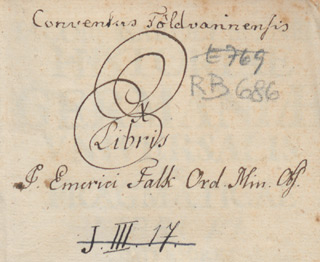 Conventus Földvariensis
E 769
RB 686
Ex
Libris
P. Emerici Falk Ord. Min. Obs.
J. III. 17.